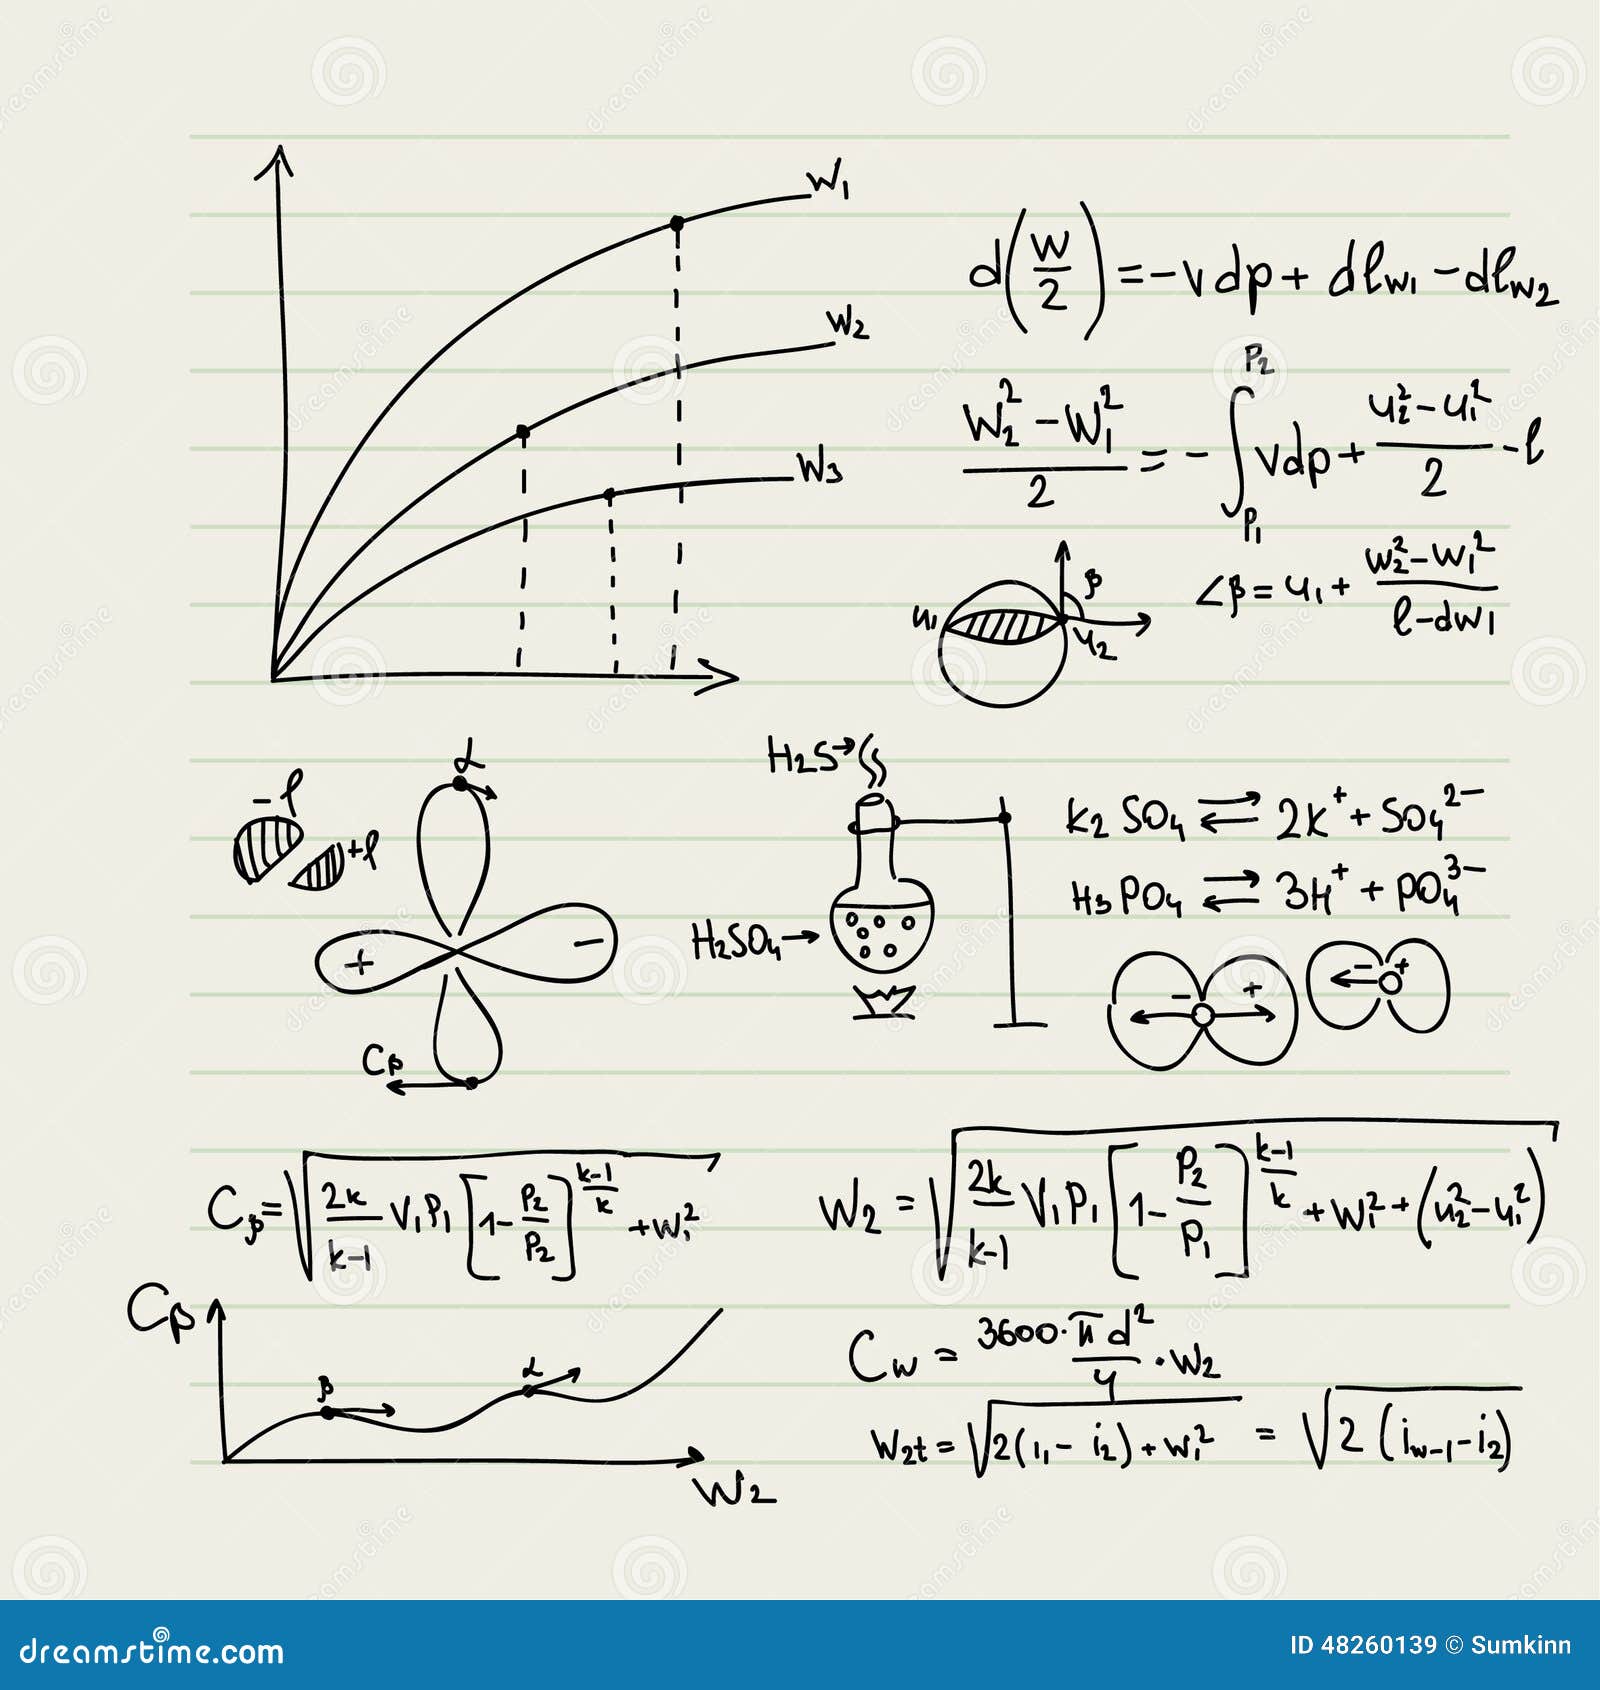 W1
d(W/2) = -vdp + dlw1 - dlw2
W2
W3
(W2² - W1²)/2 = -∫P1^P2 vdp + (u2² - u1²)/2 - l
∠β = u1 + (w2² - w1²)/(l - dw1)
β
u1
u2
α
-l
+l
+
-
Cβ
H2S→
H2SO4→
K2SO4 ⇄ 2K⁺ + SO4²⁻
H3PO4 ⇄ 3H⁺ + PO4³⁻
- +
- +
Cβ = √(2k/(k-1) V1P1 [1 - P2/P2]^((k-1)/k) + w1²)
W2 = √(2k/(k-1) V1P1 [1 - P2/P1]^((k-1)/k) + w1² + (u2² - u1²))
Cβ
β
α
W2
Cw = 3600 · πd²/4 · W2
W2t = √(2(i1 - i2) + w1²) = √(2(iw-1 - i2))
dreamstime.com
ID 48260139 © Sumkinn